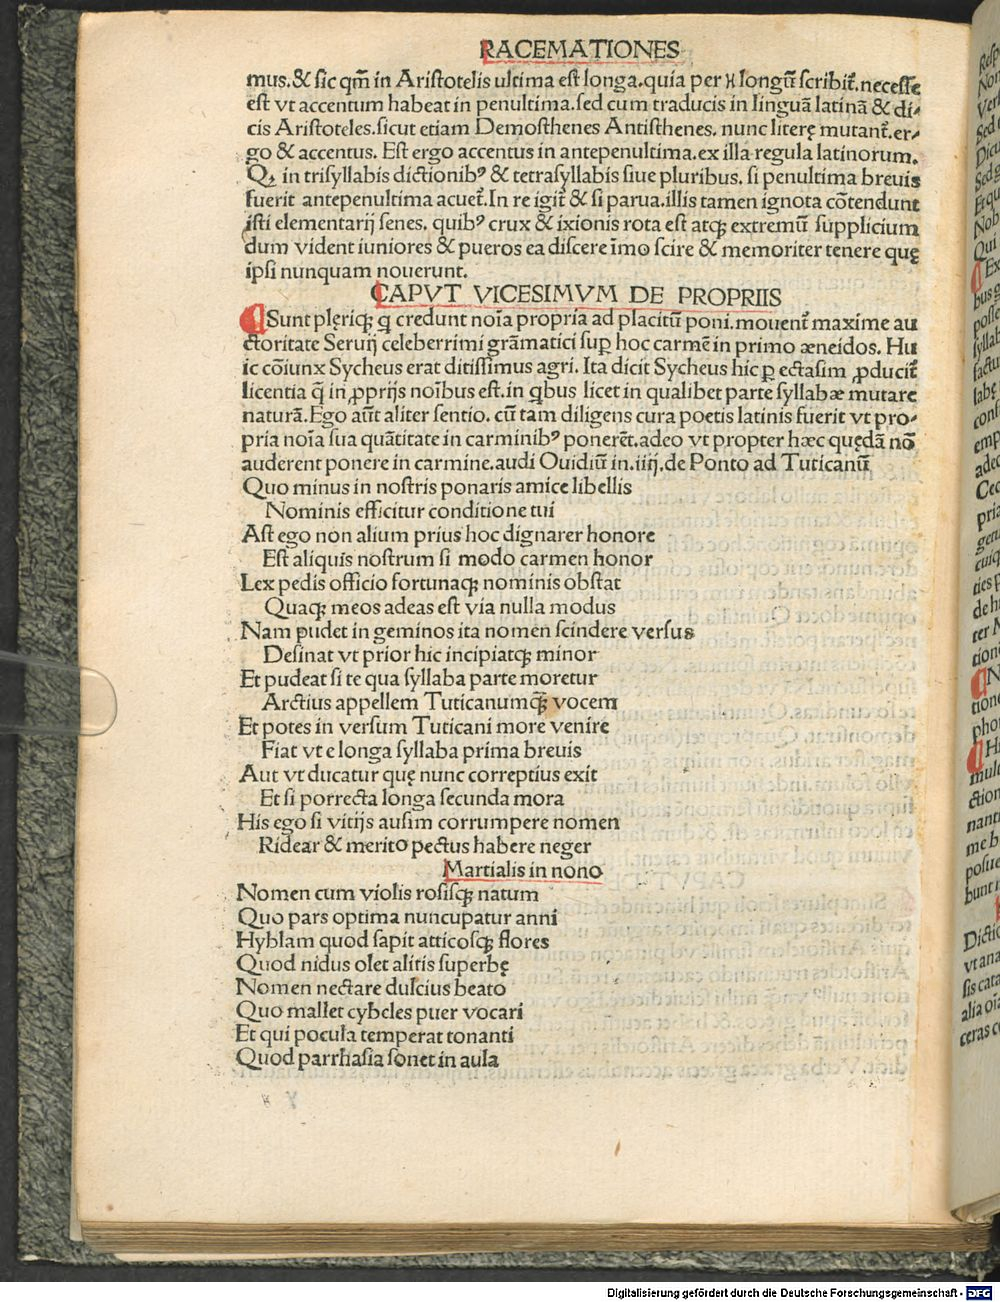 RACEMATIONES
mus.& sic qm̄ in Aristotelis ultima est longa.quia per η longū scribit̃. necesse
est vt accentum habeat in penultima.sed cum traducis in linguā latinā & di-
cis Aristoteles.sicut etiam Demosthenes Antisthenes. nunc literę mutant̃.er-
go & accentus. Est ergo accentus in antepenultima.ex illa regula latinorum.
Q̨ in trisyllabis dictionibꝰ & tetrasyllabis siue pluribus. si penultima breuis
fuerit antepenultima acuet̃.In re igit̃ & si parua.illis tamen ignota cōtendunt
isti elementarij senes. quibꝰ crux & ixionis rota est atqꝫ extremū supplicium
dum vident iuniores & pueros ea discere īmo scire & memoriter tenere quę
ipsi nunquam nouerunt.
CAPVT VICESIMVM DE PROPRIIS
¶ Sunt plęriqꝫ qͥ credunt noīa propria ad placitū poni.mouent̃ maxime au
ctoritate Seruij celeberrimi grāmatici sup̱ hoc carmē in primo æneidos. Hu
ic cōiunx Sycheus erat ditissimus agri. Ita dicit Sycheus hic ꝑ ectasim ꝓducit̃
licentia q̄ in ꝓprijs noībus est.in qͥbus licet in qualibet parte syllabæ mutare
naturā.Ego aūt aliter sentio. cū tam diligens cura poetis latinis fuerit vt pro-
pria noīa sua quātitate in carminibꝰ ponerēt.adeo vt propter hæc quędā nō
auderent ponere in carmine.audi Ouidiū in.iiij.de Ponto ad Tuticanū
Quo minus in nostris ponaris amice libellis
Nominis efficitur conditione tui
Ast ego non alium prius hoc dignarer honore
Est aliquis nostrum si modo carmen honor
Lex pedis officio fortunaqꝫ nominis obstat
Quaqꝫ meos adeas est via nulla modus
Nam pudet in geminos ita nomen scindere versus
Desinat vt prior hic incipiatqꝫ minor
Et pudeat si te qua syllaba parte moretur
Arctius appellem Tuticanumqꝫ̄ vocem
Et potes in versum Tuticani more venire
Fiat vt e longa syllaba prima breuis
Aut vt ducatur quę nunc correptius exit
Et si porrecta longa secunda mora
His ego si vitijs ausim corrumpere nomen
Ridear & merito pectus habere neger
Martialis in nono
Nomen cum violis rosisqꝫ natum
Quo pars optima nuncupatur anni
Hyblam quod sapit atticosqꝫ flores
Quod nidus olet alitis superbę
Nomen nectare dulcius beato
Quo mallet cybeles puer vocari
Et qui pocula temperat tonanti
Quod parrhasia sonet in aula
Digitalisierung gefördert durch die Deutsche Forschungsgemeinschaft - DFG